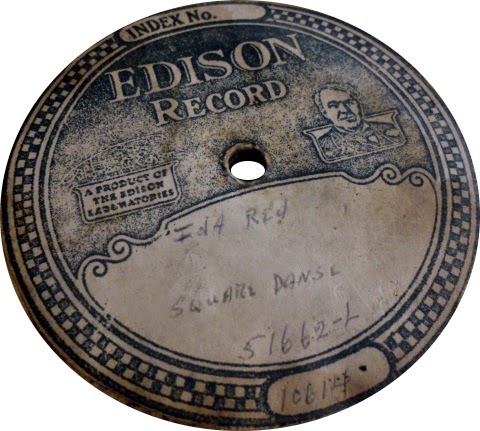 INDEX No.
EDISON
RECORD
A PRODUCT OF
THE EDISON
LABORATORIES
Ida Red
SQUARE DANSE
51662-L